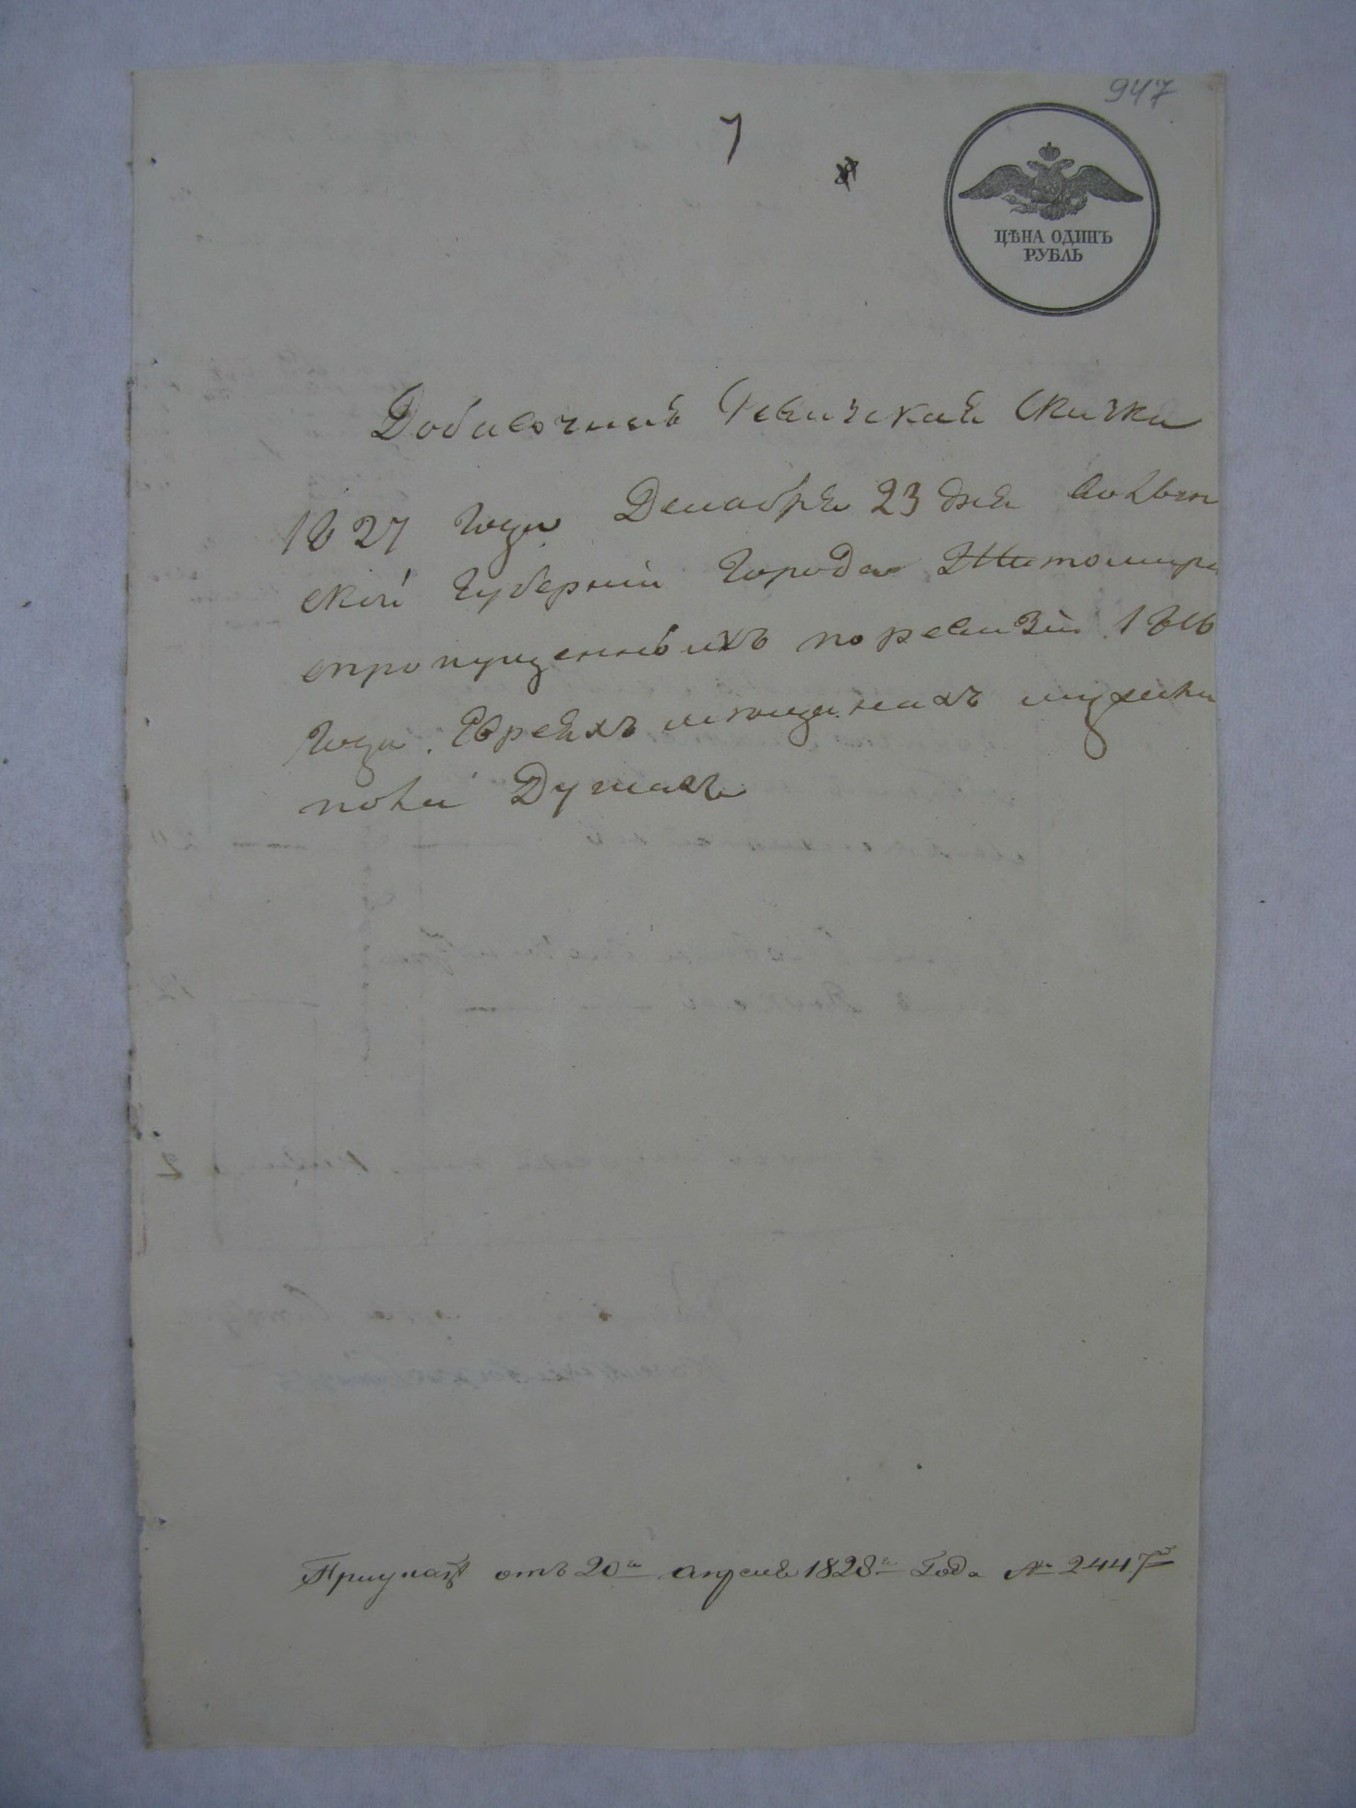 947
7
ЦѢНА ОДИНЪ
РУБЛЬ
Добавочная Ревизская Скаска
1827 года Декабря 23 дня Волын
ской Губерніи Города Житомира
о пропущенныхъ по ревизіи 1816
Года Евреяхъ мѣщанахъ мужеска
пола Душахъ
отъ 20го апреля 1828го Года № 2447